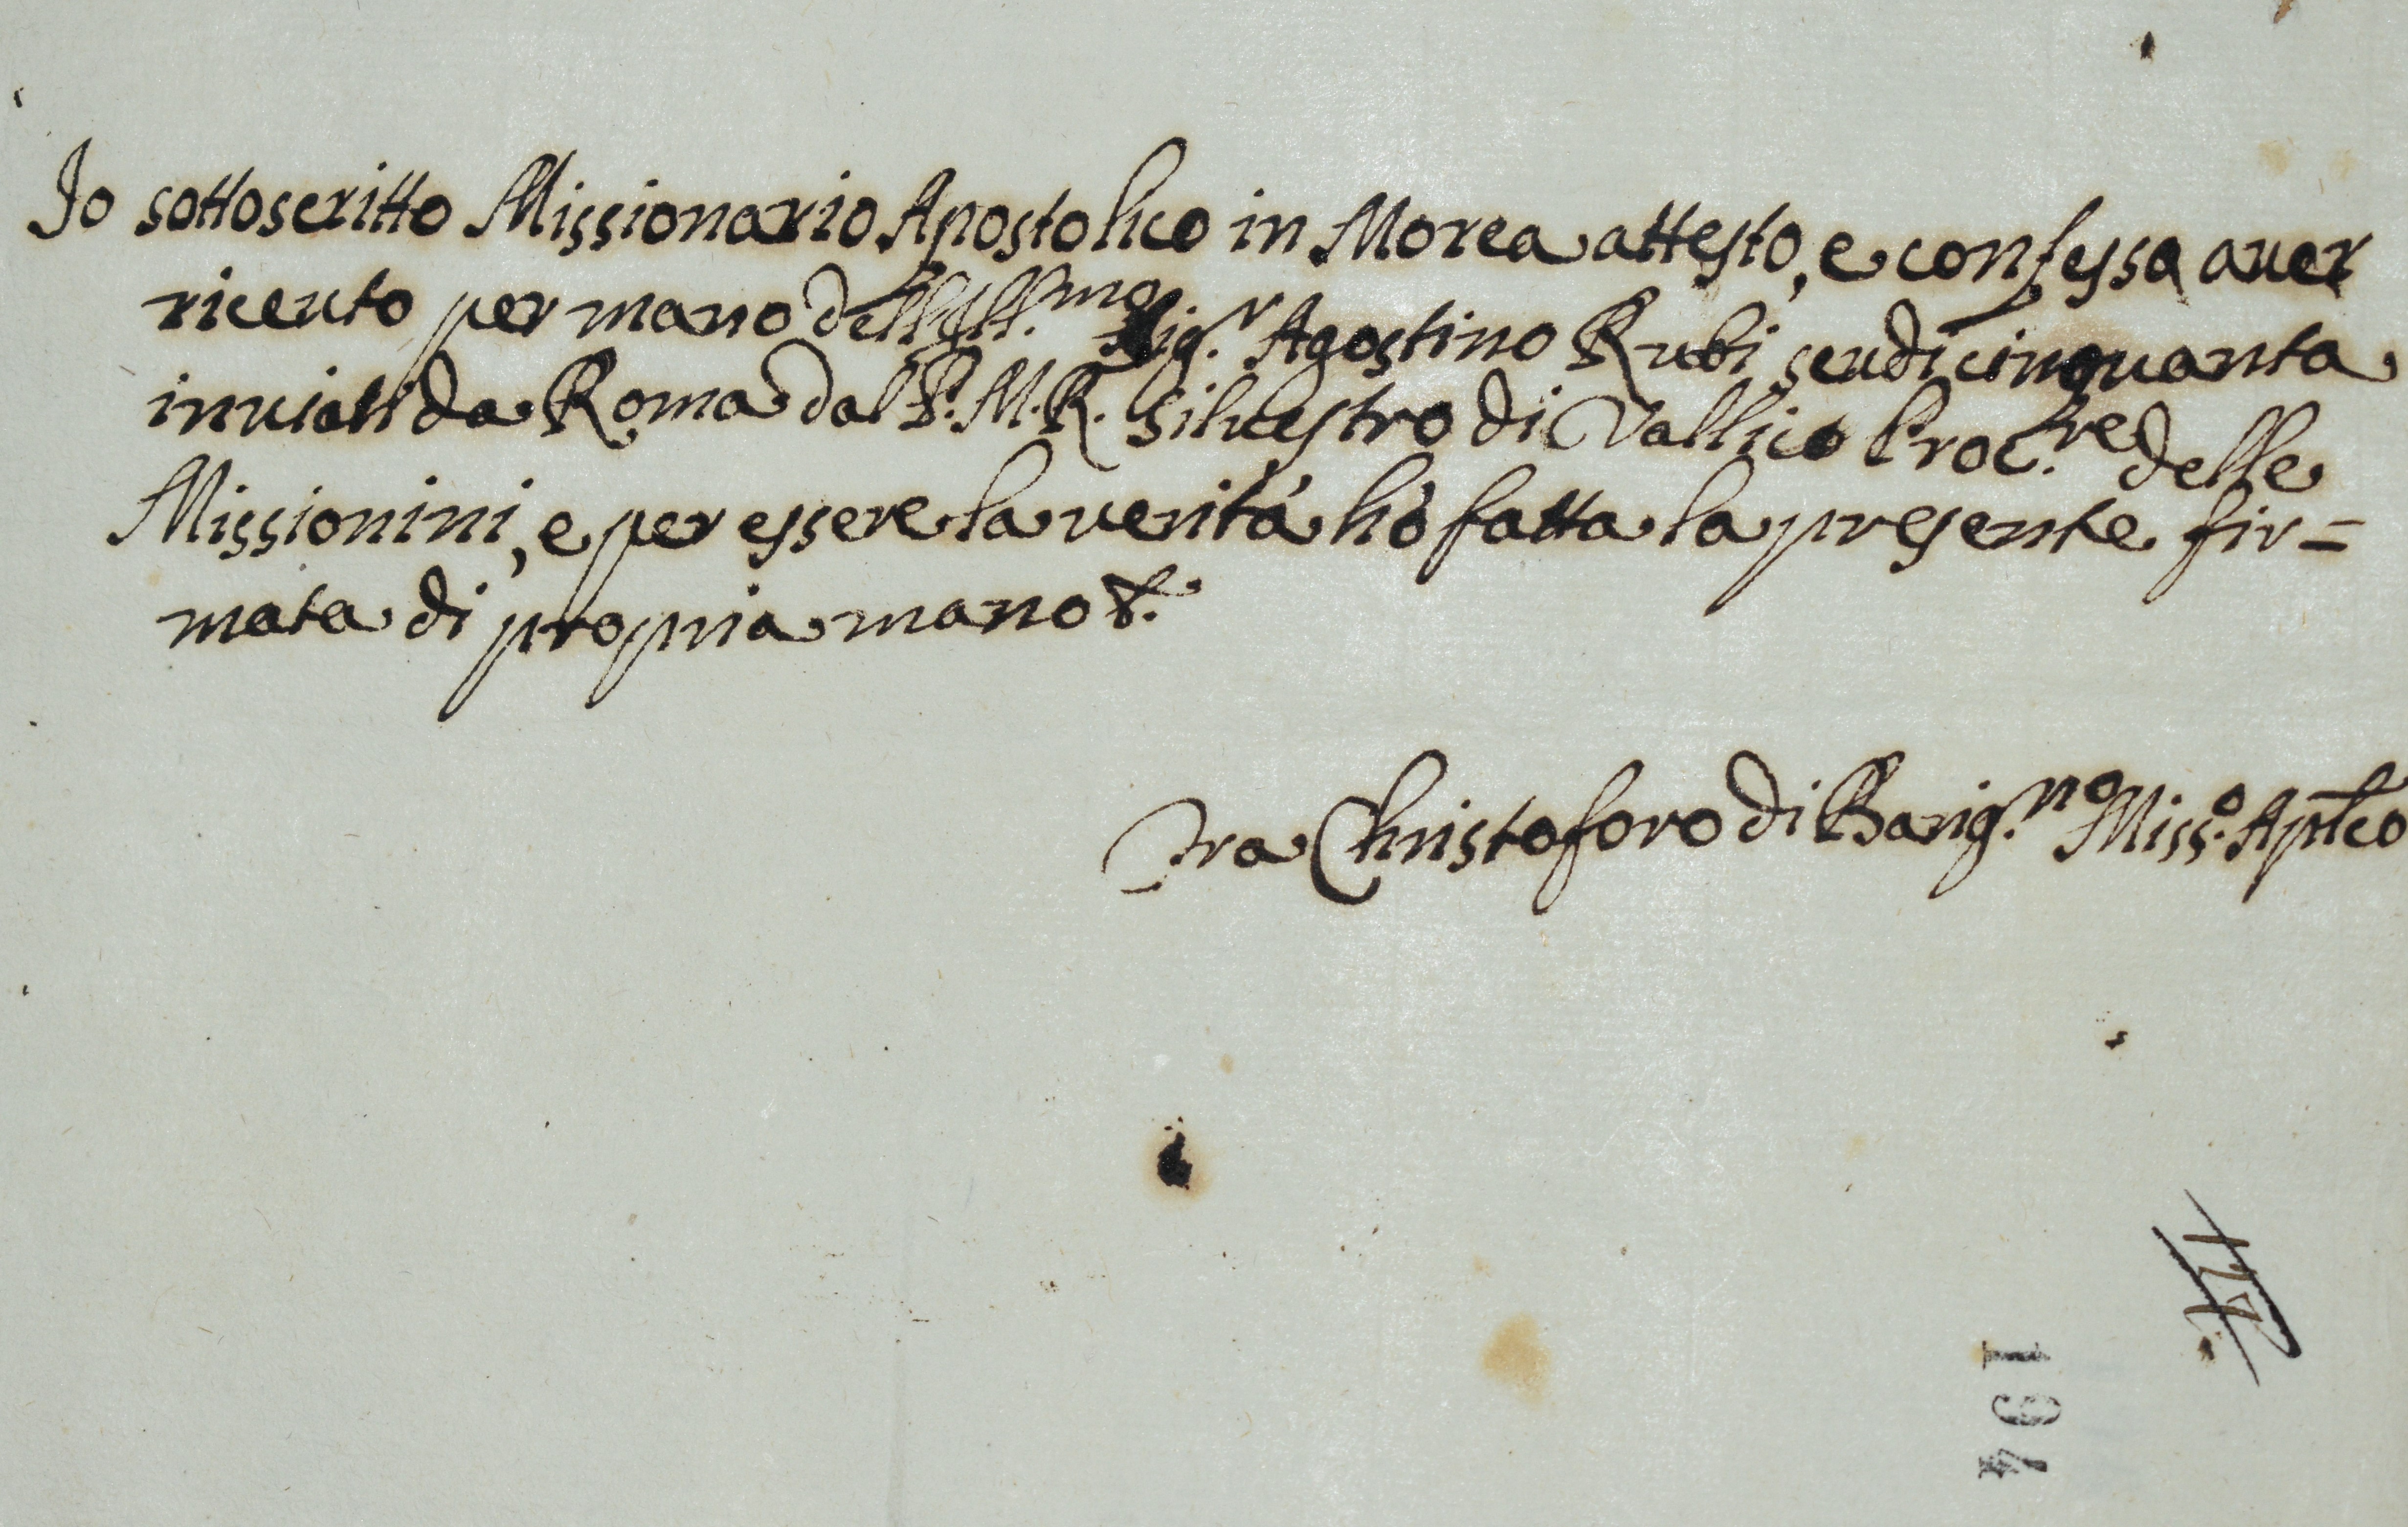 Io sottoscritto Missionario Apostolico in Morea attesto, e confessa auer
riceuto per mano dell'Ill.mo Sig.r Agostino Rubi scudi cinquanta
inuiati da Roma dal P. M. R. Siluestro di Vallico Proc.re delle
Missionini, e per essere la ueritá hò fatta la presente fir=
mata di propria mano &.
Fra Christoforo di Barig.no Miss.o Aplco
194